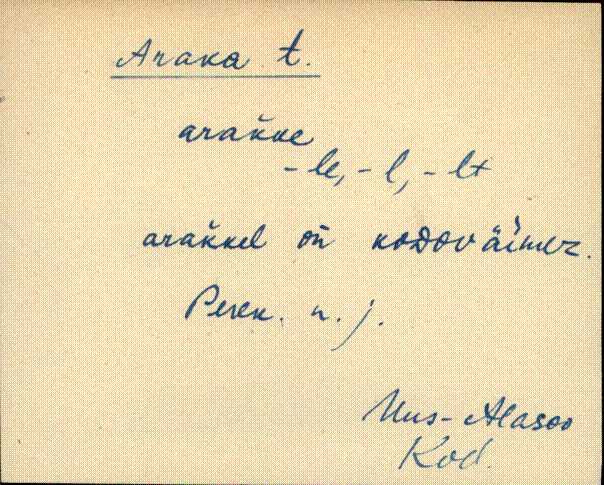 Araka t.
arak̆ke
-le, -l, -lt
arak̆kel on̄ kodoväimez.
Peren. n. j.
Uus-Alasoo
Kod.